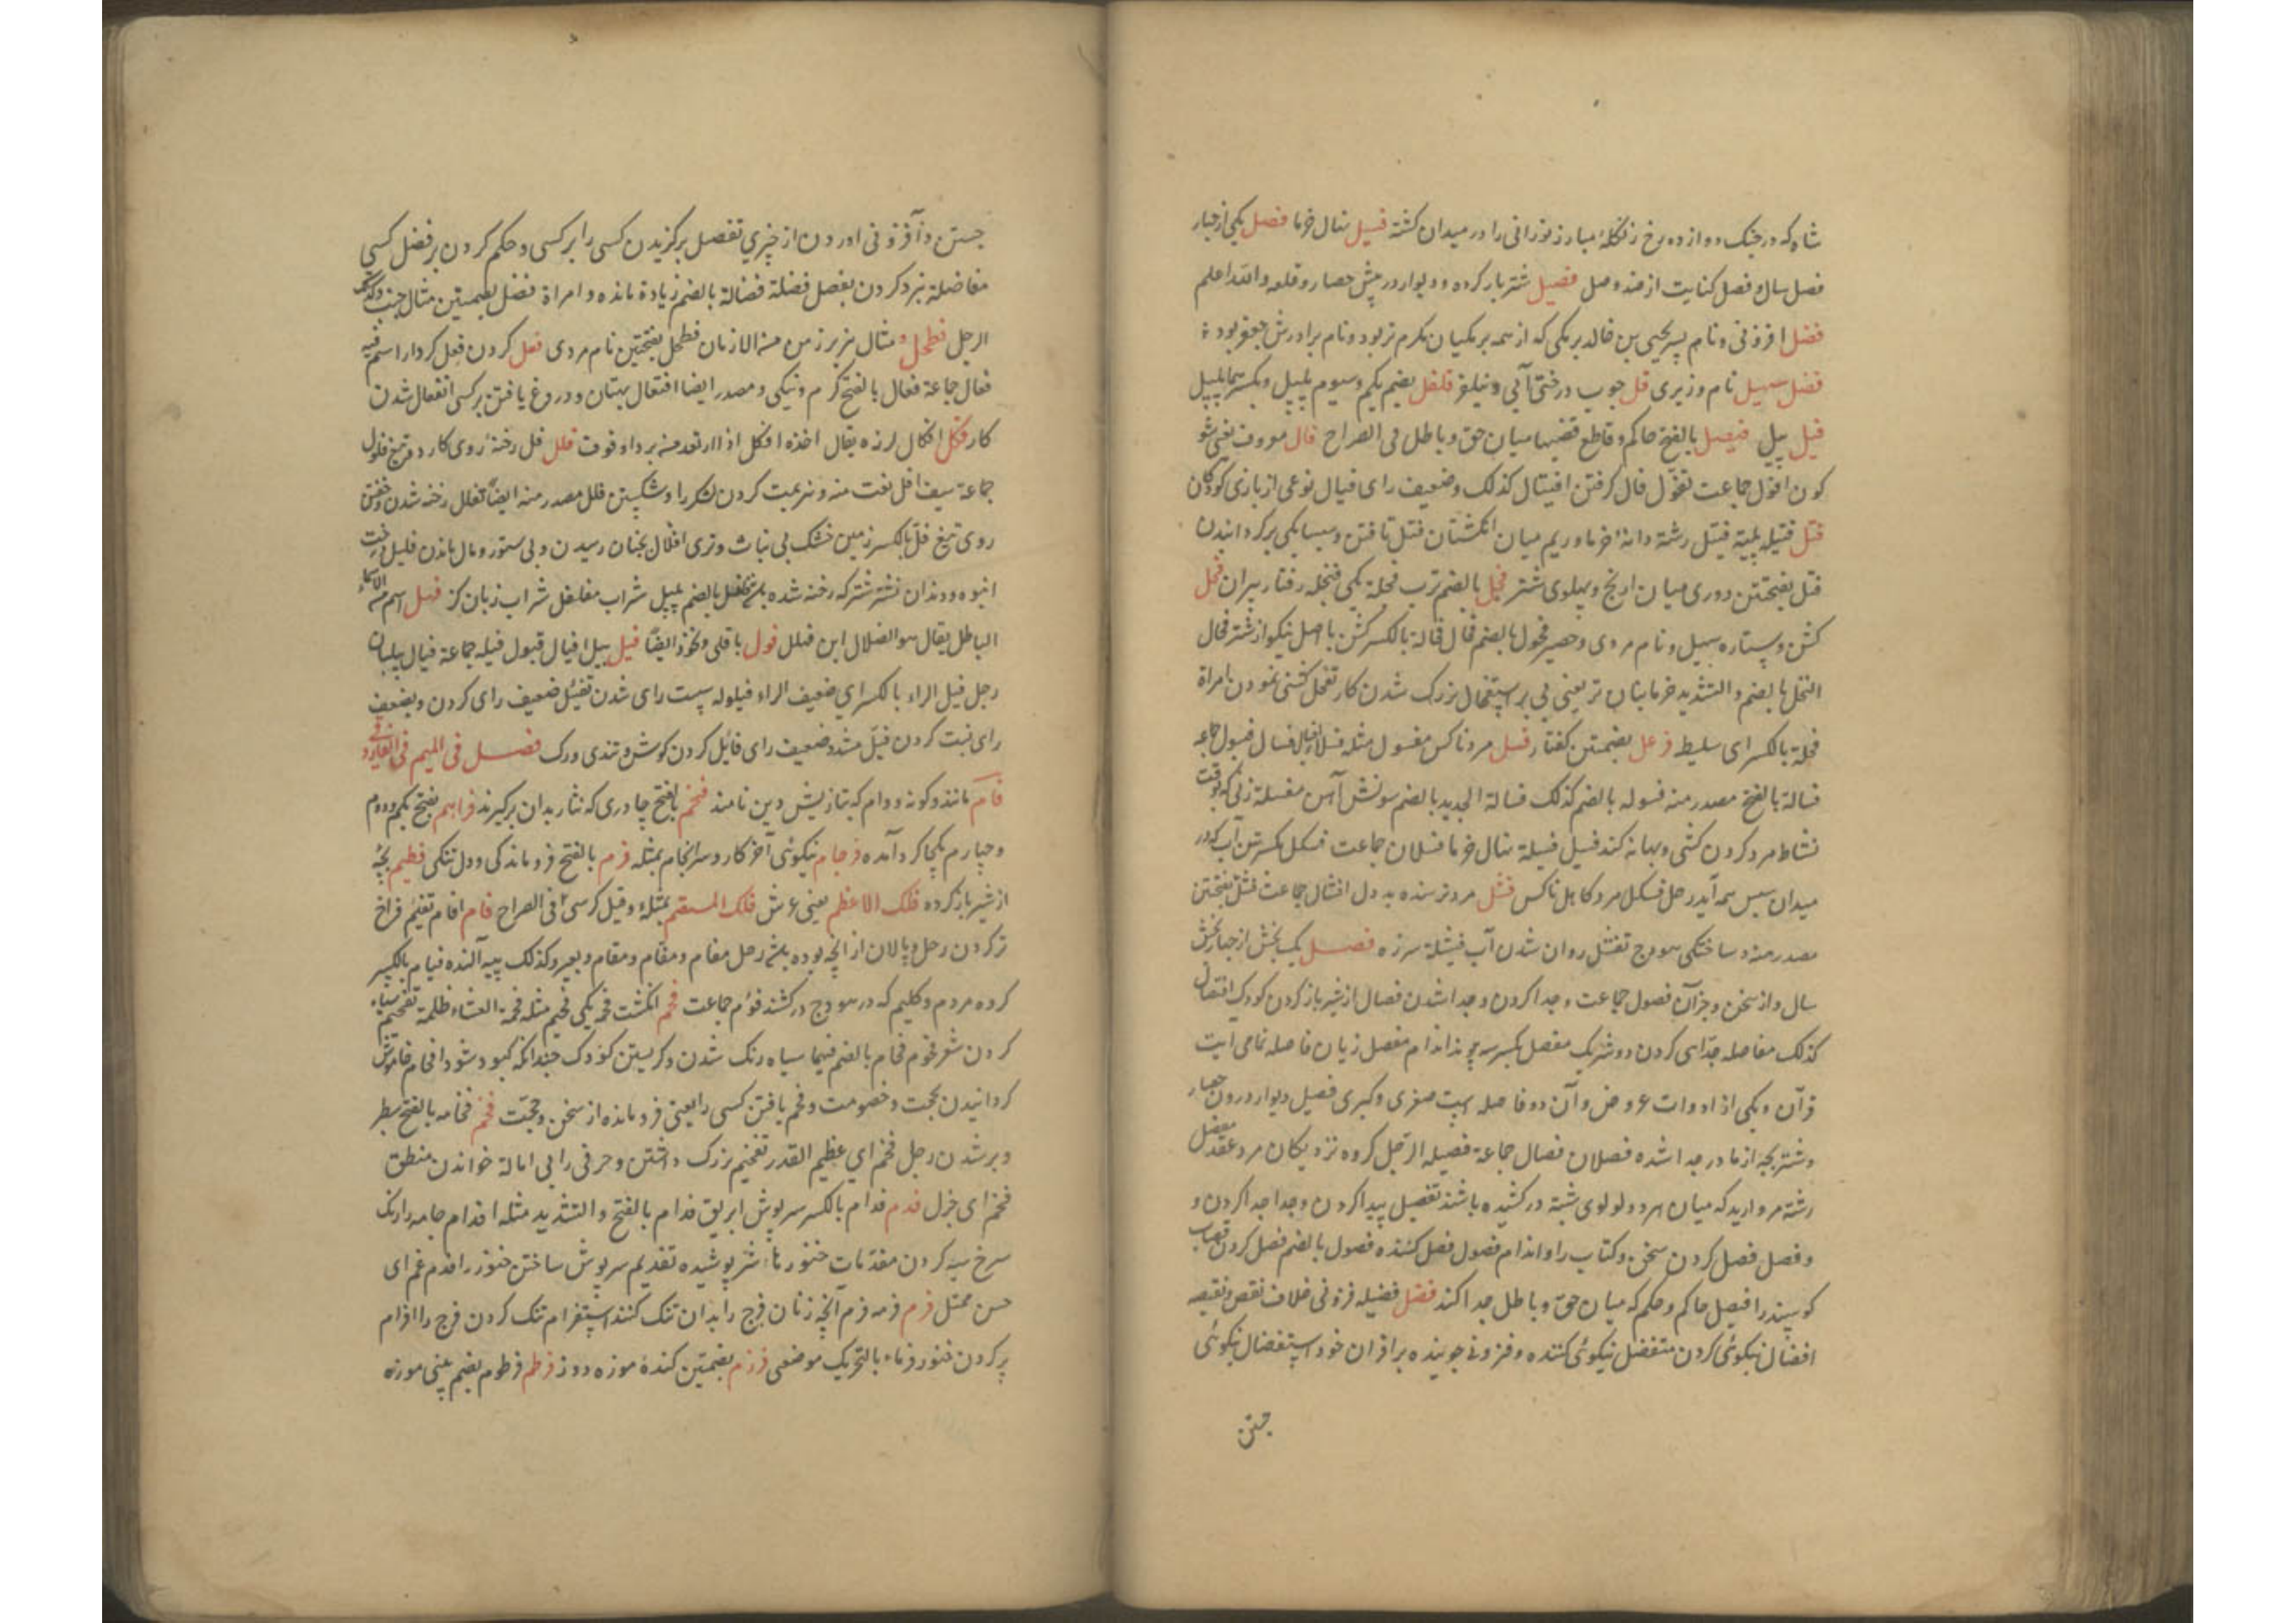 شاه که در جنک دوازده رخ زنکلهٔ مبارز تورانی را در میدان کشته فسیل نهال خرما فصل یکی از چهار
فصل سال و فصل کنایت از ضد وصل فصیل شتر بازکرده و دیوار در پیش حصار و قلعه والله اعلم
فضل افزونی و نام پسر یحیی بن خالد برمکی که از همه برمکیان مکرم تر بود و نام برادرش جعفر بود
فضل سهیل نام وزیری فل چوب درختی آبی و نیلوفر فلفل بضم یکم و سیوم پلپل و بکسرهما پلپل
فیل پیل فیصل بالفتح حاکم و قاطع قضیها میان حق و باطل فی الصراح فال معروف یعنی شو
کون افول جماعت تفول فال کرفتن افتیال کذلک وضعیف رای فیال نوعی از بازی کودکان
فتل فتیله پلیته فتیل رشتهٔ دانهٔ خرما و ریم میان انکشتان فتل تافتن و سیسا یکی برکردانیدن
فتل بفتحتین دوری میان ارنج و پهلوی شتر فجل بالضم ترب فجلة یکی فنجله رفتار پیران فحل
کشن و ستاره سهیل و نام مردی و حصیر فحول بالضم فحال فحالة بالکسر کشن با اصل نیکو از شتر فحال
النخل بالضم والتشدید خرما بنان نر یعنی بی بر استفحال بزرک شدن کار تفحل کشنی نمودن بامراة
فحلة بالکسر ای سلیط فرعل بضمتین کفتار فسل مرد ناکس مفسول مثله فسلا افسال فسال فسول جماعه
فسالة بالفتح مصدر منه فسوله بالضم کذلک فسالة الحدید بالضم سونش آهن مفسلة زنی که بوقت
نشاط مرد کردن کشی و بهانه کند فسیل فسیلة نهال خرما فسلان جماعت فسکل بکسرتین آب که در
میدان سپس همه آید رجل فسکل مرد کاهل ناکس فشل مرد ترسنده بد دل افشال جماعت فشل بفتحتین
مصدر منه و ساختکی هودج تفشل روان شدن آب فیشلة سرزه فصل یک بخش از چهار بخش
سال و از سخن و جزآن فصول جماعت و جدا کردن و جدا شدن فصال از شیر بازکردن کودک افتصال
کذلک مفاصله جدایی کردن دو شریک مفصل بکسر سه پیوند اندام مفصل زبان فاصله تمامی آیت
قرآن و یکی از ادوات عروض و آن دو فاصله است صغری و کبری فصیل دیوار درون حصار
و شتر بچه از مادر جدا شده فصلان فصال جماعة فصیله الرجل کروه نزدیکان مرد عقد مفصل
رشته مروارید که میان هر دو لولوی شبة درکشیده باشند تفصیل پیدا کردن و جدا جدا کردن و
و فصل فصل کردن سخن و کتاب را و اندام فصول فصل کننده فصول بالضم فصل کردن قصاب
کوسپند را فیصل حاکم و حکم که میان حق و باطل جدا کند فضل فضیله فزونی خلاف نقص و نقیصه
افضال نیکوئی کردن متفضل نیکوئی کننده و فزونی جوینده بر اقران خود استفضال نیکوئی
جستن
جستن و افزونی اوردن از چیزی تفضیل برکزیدن کسی را بر کسی و حکم کردن بر فضل کسی
مفاضلة نبرد کردن بفضل فضلة فضالة بالضم زیادة مانده و امراة فضل بضمتین مثال جنب و کذلک
الرجل فطحل مثال هزبر زمن من الازمان فطحل بفتحتین نام مردی فعل کردن فعل کردار اسم فیه
فعال جماعة فعال بالفتح کرم و نیکی و مصدر ایضا افتعال بهتان و دروغ بافتن بر کسی انفعال شدن
کار فکل افکل لرزه یقال اخذه افکل اذا ارتعد من برد او خوف فلل فل رخنهٔ روی کارد و تیغ فلول
جماعة سیف افل نعت منه و هزیمت کردن لشکر را و شکستن فلل مصدر منه ایضا تفلل رخنه شدن
روی تیغ فل بالکسر زمین خشک بی نبات و تری افلال بچنان رسیدن و بی ستور و مال ماندن فلیل
انبوه و دندان نشتر شتر که رخنه شده باشد فلفل بالضم پلپل شراب مفلفل شراب زبان کز فهلل اسم من اسماء
الباطل یقال هو الضلال ابن فهلل فول باقلی و نخود ایضا فیل پیل افیال فیول فیله جماعة فیال پیلبان
رجل فیل الراء بالکسر ای ضعیف الراء فیلوله سست رای شدن تفئیل ضعیف رای کردن و بضعیف
رای نسبت کردن فیل مشدد ضعیف رای فائل کردن کوشن و تندی ورک فصل فی المیم فی الفارسی
فام مانند و کونه و وام که بتازیش دین نامند فخم بالفتح چادری که نثار بدان برکیرند فراهم بفتح یکم و دوم
و چهارم یکجا کردآمده فرجام نیکوئی آخر کار و سرانجام بمثله فرم بالفتح فروماندکی و دل تنکی فطیم بچهٔ
از شیر بازکرده فلک الاعظم یعنی عرش فلک المستقیم بمثله و قیل کرسی فی الصراح فام افام تفئیم فراخ
ترکردن رحل و پالان از آنچه بوده باشد رحل مفام و مفام و بعیر کذلک پیه آکنده فیام بالکسر
کروه مردم و کلیم که در هودج درکشند فؤم جماعت فحم انکشت فحمة یکی فحیم مثله فحمة العشاء ظلمة تفحیم سیاه
کردن شعر فحوم فحام بالضم فیهما سیاه رنک شدن و کریستن کودک چندانکه کبود شود افحام خاموش
کردانیدن بحجت و خصومت و فحم یافتن کسی را یعنی فرومانده از سخن و حجت فخم فخامه بالفتح سطبر
و بر شدن رجل فخم ای عظیم القدر تفخیم بزرک داشتن و حرفی را بی امالة خواندن منطق
فخم ای جزل فدم فدام بالکسر سرپوش ابریق فدام بالفتح والتشدید مثله افدام جامه را رنک
سرخ سیه کردن مفدمات خنورها سر پوشیده تفدیم سرپوش ساختن خنور را فدم غم ای
حسن ممتل فرم فرمه فرم آنچه زنان فرج را بدان تنک کنند استفرام تنک کردن فرج را افرام
پرکردن خنور فرماء بالتحریک موضعی فرزم بضمتین کندهٔ موزه دوز فرطم فرطوم بضم بینی موزه